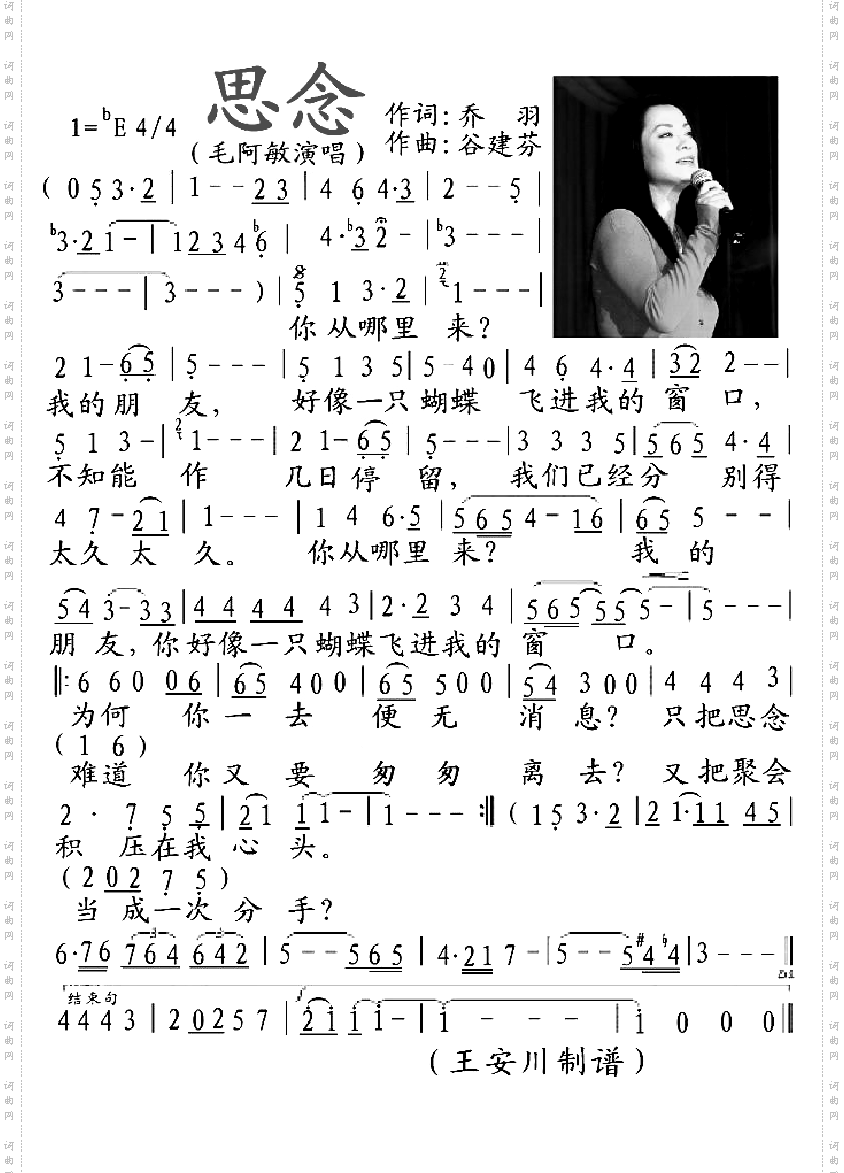 思念
1=♭E 4/4
作词：乔 羽
作曲：谷建芬
（毛阿敏演唱）
( 0 5 3·2 | 1 - - 2 3 | 4 6 4·3 | 2 - - 5 |
♭3·2 1 - | 1 2 3 4 ♭6 | 4·♭3 2 - - | ♭3 - - - |
3 - - - | 3 - - - ) | 5 1 3·2 | 1 - - - |
你从哪里 来？
2 1 - 6 5 | 5 - - - | 5 1 3 5 | 5 - 4 0 | 4 6 4·4 | 3 2 2 - - |
我的朋 友， 好像一只蝴蝶 飞进我的窗 口，
5 1 3 - | 2 1 - - - | 2 1 - 6 5 | 5 - - - | 3 3 3 5 | 5 6 5 4·4 |
不知能 作 几日停 留， 我们已经分 别得
4 7 - 2 1 | 1 - - - | 1 4 6·5 | 5 6 5 4 - 1 6 | 6 5 5 - - |
太久太 久。 你从哪里 来？ 我 的
5 4 3 - 3 3 | 4 4 4 4 4 3 | 2·2 3 4 | 5 6 5 5 5 5 - | 5 - - - |
朋 友，你好像一只蝴蝶飞进我的 窗 口。
‖: 6 6 0 0 6 | 6 5 4 0 0 | 6 5 5 0 0 | 5 4 3 0 0 | 4 4 4 3 |
为何 你一 去 便 无 消 息？ 只把思念
( 1 6 )
难道 你又 要 匆 匆 离 去？ 又把聚会
2 · 7 5 5 | 2 1 1 1 - | 1 - - - :‖ ( 1 5 3·2 | 2 1·1 1 4 5 |
积 压在我 心 头。
( 2 0 2 7 5 )
当 成一次 分 手？
6·7 6 7 6 4 6 4 2 | 5 - - 5 6 5 | 4·2 1 7 - | 5 - - 5 #4 ♮4 | 3 - - - ‖
结束句
4 4 4 3 | 2 0 2 5 7 | 2 1 1 1 - | 1 - - - | 1 0 0 0 ‖
（王安川制谱）
词曲网